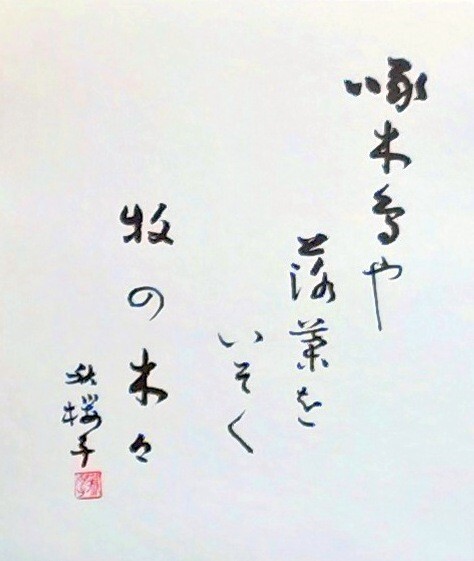 啄木鳥や
落葉を
いそぐ
牧の木々
秋櫻子